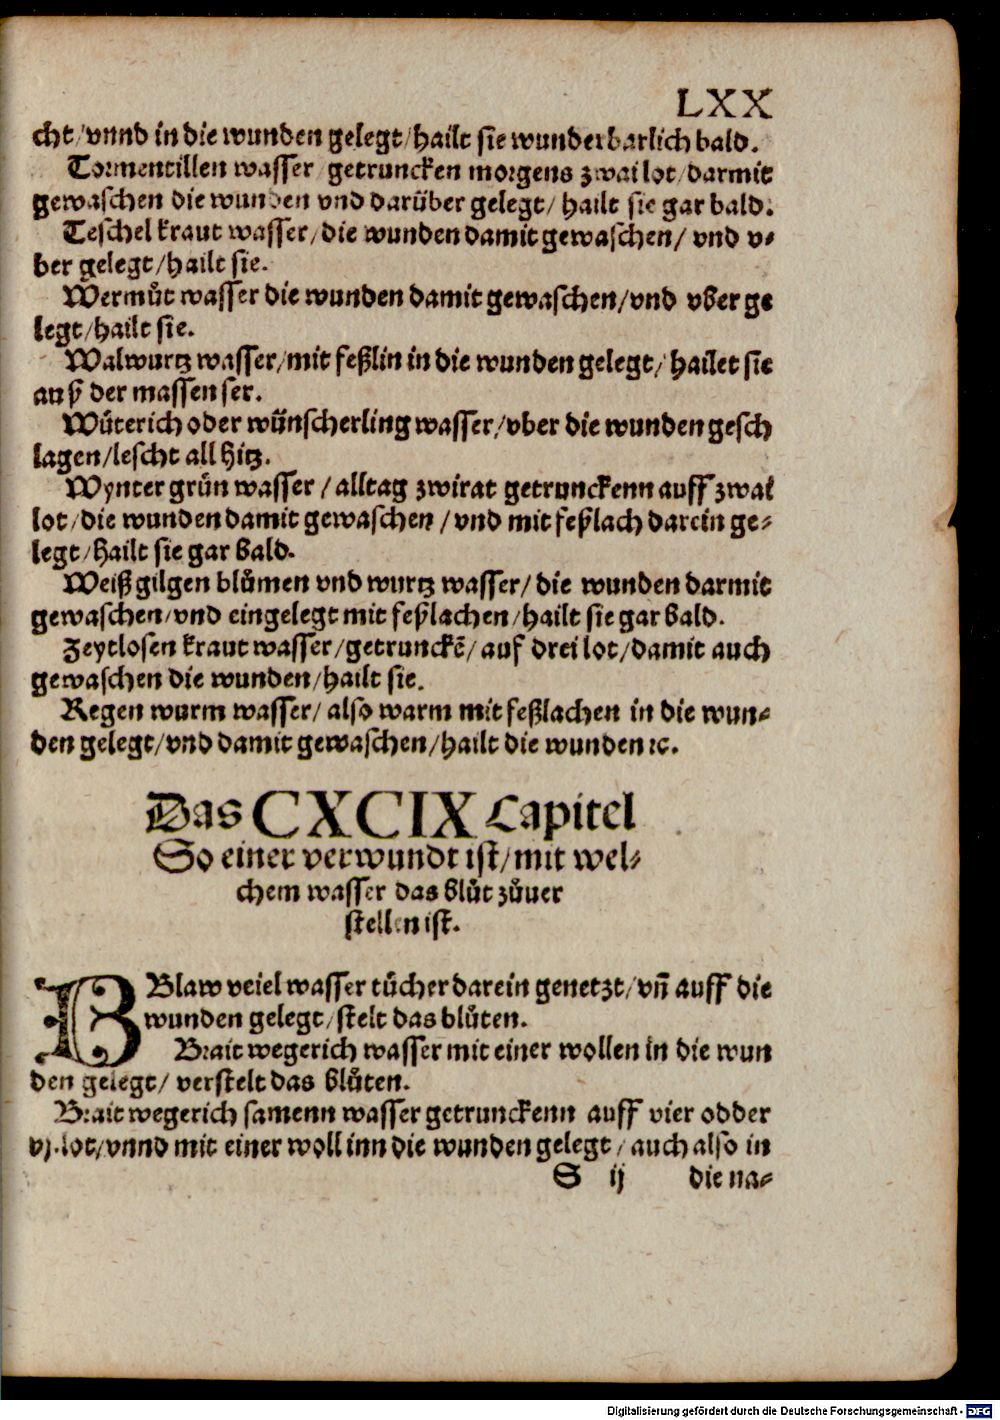 LXX
cht/vnnd in die wunden gelegt/hailt sie wunderbarlich bald.
Tormentillen wasser getruncken morgens zwai lot/darmit
gewaschen die wunden vnd darüber gelegt/ hailt sie gar bald.
Teschel kraut wasser/die wunden damit gewaschen/ vnd v-
ber gelegt/hailt sie.
Wermůt wasser die wunden damit gewaschen/vnd vber ge
legt/hailt sie.
Walwurtz wasser/mit feßlin in die wunden gelegt/ hailet sie
auß der massen ser.
Wůterich oder wünscherling wasser/vber die wunden gesch
lagen/lescht all hitz.
Wynter grün wasser / alltag zwirat getrunckenn auff zwai
lot/die wunden damit gewaschen /vnd mit feßlach darein ge-
legt/hailt sie gar bald.
Weiß gilgen blůmen vnd wurtz wasser/ die wunden darmit
gewaschen/vnd eingelegt mit feßlachen/hailt sie gar bald.
Zeytlosen kraut wasser/getrunckē/ auf drei lot/damit auch
gewaschen die wunden/hailt sie.
Regen wurm wasser/ also warm mit feßlachen in die wun-
den gelegt/vnd damit gewaschen/hailt die wunden ꝛc.
Das CXCIX Capitel
So einer verwundt ist/mit wel-
chem wasser das blůt zůuer
stellen ist.
BBlaw veiel wasser tücher darein genetzt/vñ auff die
wunden gelegt/stelt das blůten.
Brait wegerich wasser mit einer wollen in die wun
den gelegt/ verstelt das blůten.
Brait wegerich samenn wasser getrunckenn auff vier odder
vj.lot/vnnd mit einer woll inn die wunden gelegt / auch also in
S ij die na-
Digitalisierung gefördert durch die Deutsche Forschungsgemeinschaft - DFG